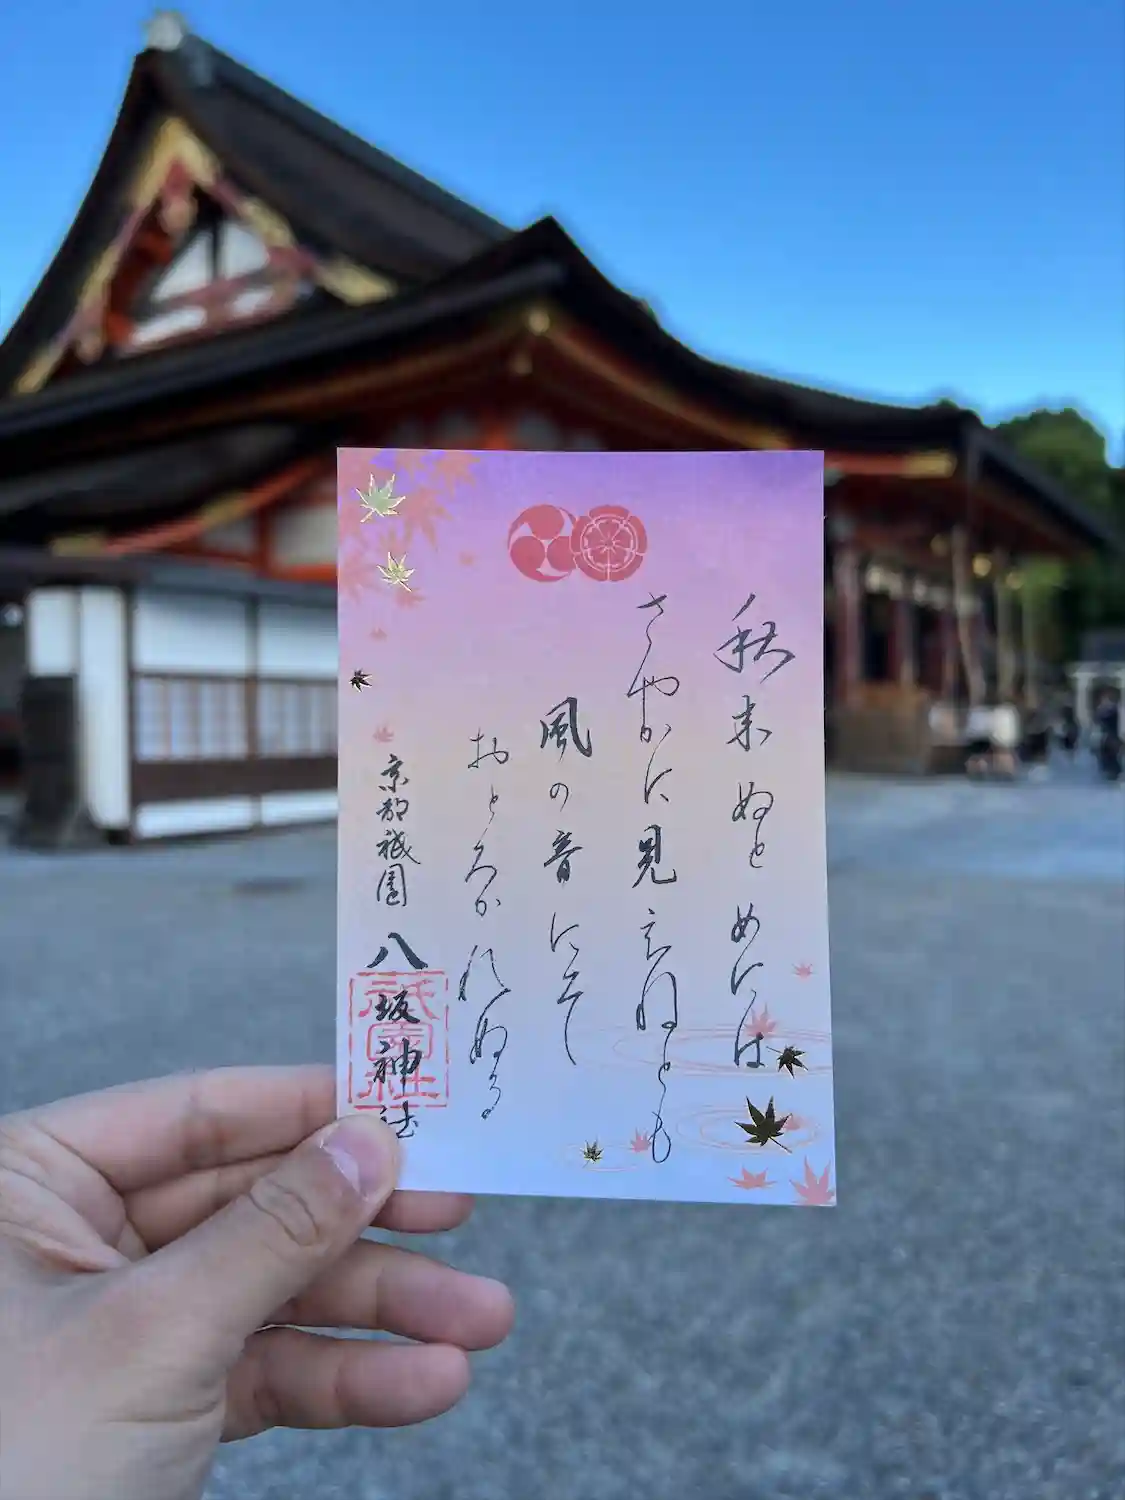 秋来ぬとめには
さやかに見えねとも
風の音にそ
おとろかれぬる
京都祇園
八坂神社
祇園社